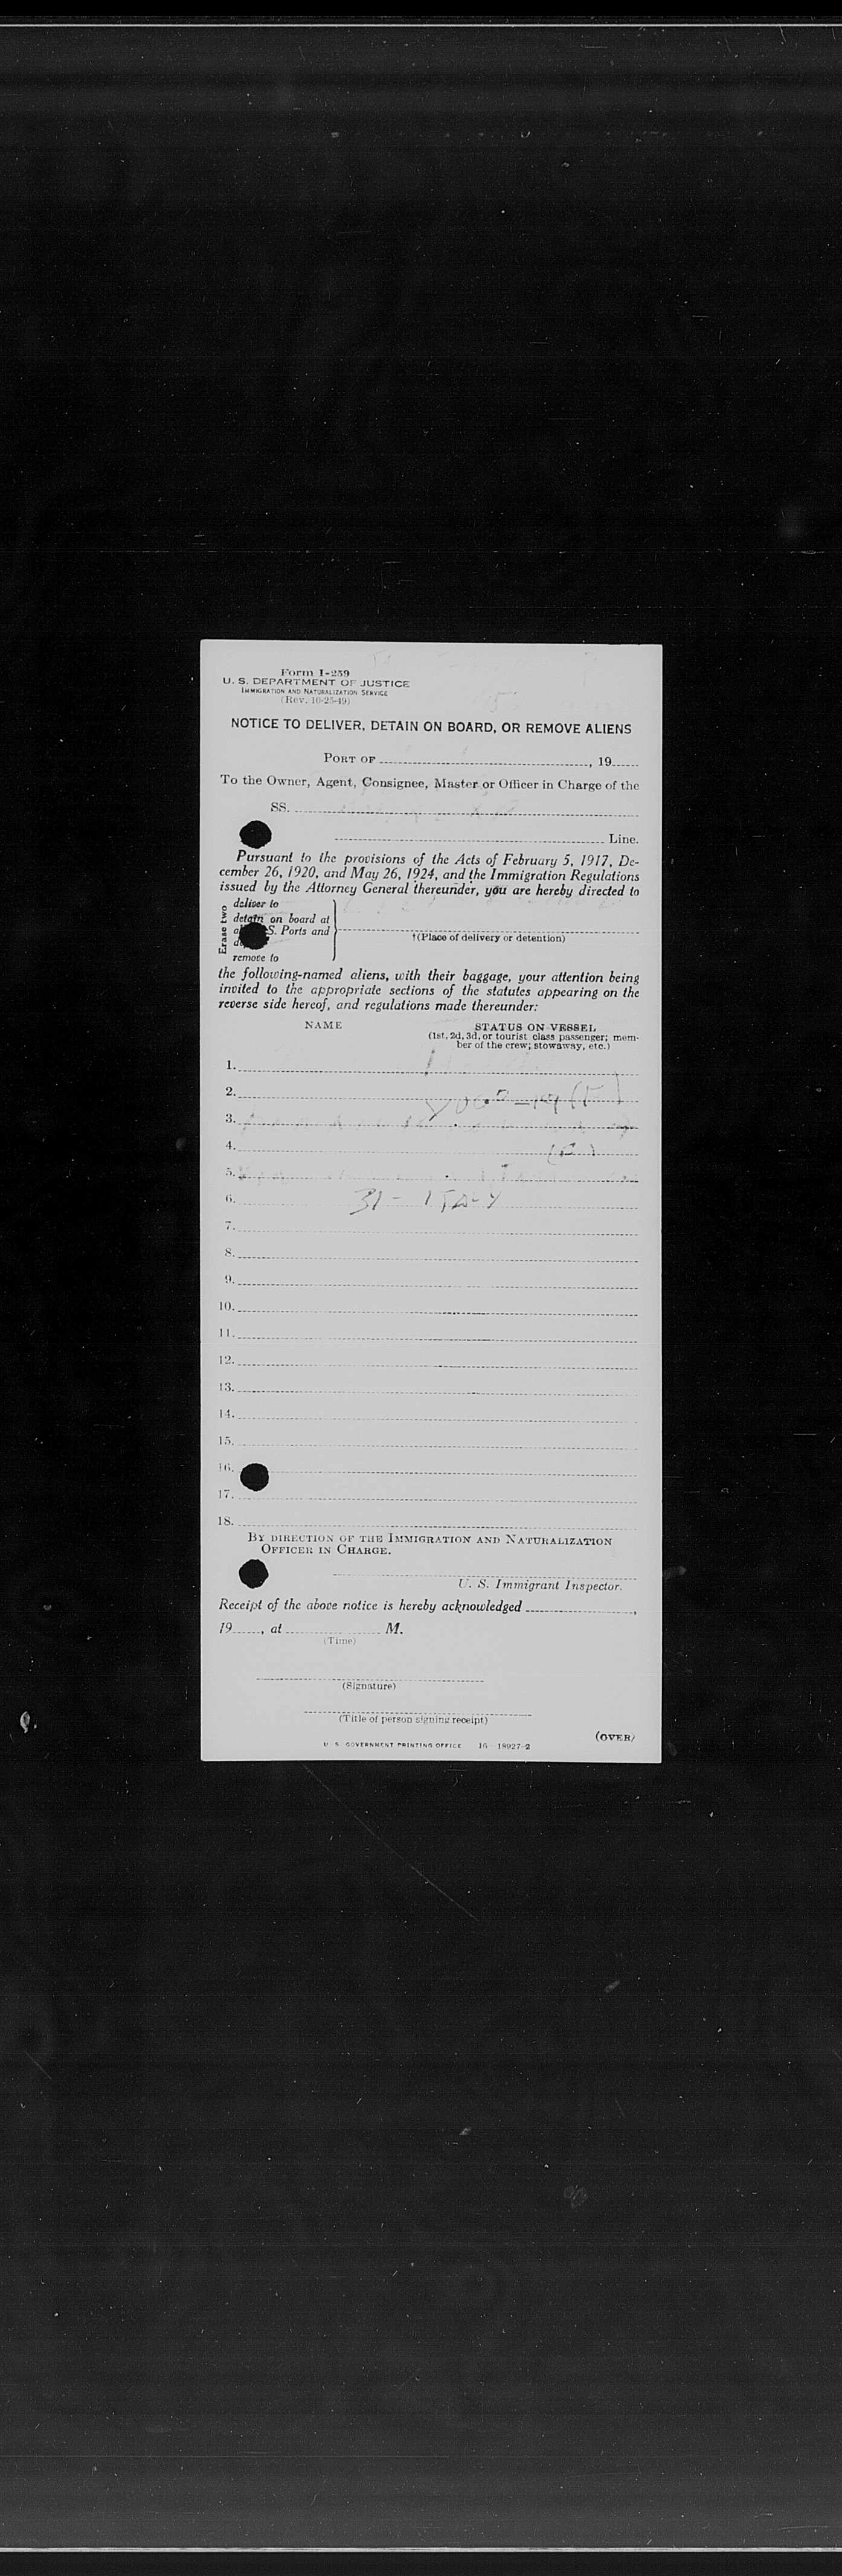 Form I-259
U. S. DEPARTMENT OF JUSTICE
IMMIGRATION AND NATURALIZATION SERVICE
(Rev. 10-25-49)
NOTICE TO DELIVER, DETAIN ON BOARD, OR REMOVE ALIENS
PORT OF , 19
To the Owner, Agent, Consignee, Master or Officer in Charge of the
SS.
Line.
Pursuant to the provisions of the Acts of February 5, 1917, De-
cember 26, 1920, and May 26, 1924, and the Immigration Regulations
issued by the Attorney General thereunder, you are hereby directed to
Erase two
deliver to
detain on board at
S. Ports and
remove to
†(Place of delivery or detention)
the following-named aliens, with their baggage, your attention being
invited to the appropriate sections of the statutes appearing on the
reverse side hereof, and regulations made thereunder:
NAME STATUS ON VESSEL
(1st, 2d, 3d, or tourist class passenger; mem-
ber of the crew; stowaway, etc.)
1.
2.
3.
4.
5.
6. 31 -
7.
8.
9.
10.
11.
12.
13.
14.
15.
16.
17.
18.
BY DIRECTION OF THE IMMIGRATION AND NATURALIZATION
OFFICER IN CHARGE.
U. S. Immigrant Inspector.
Receipt of the above notice is hereby acknowledged ,
19 , at M.
(Time)
(Signature)
(Title of person signing receipt)
(OVER)
U. S. GOVERNMENT PRINTING OFFICE 16—18927-2